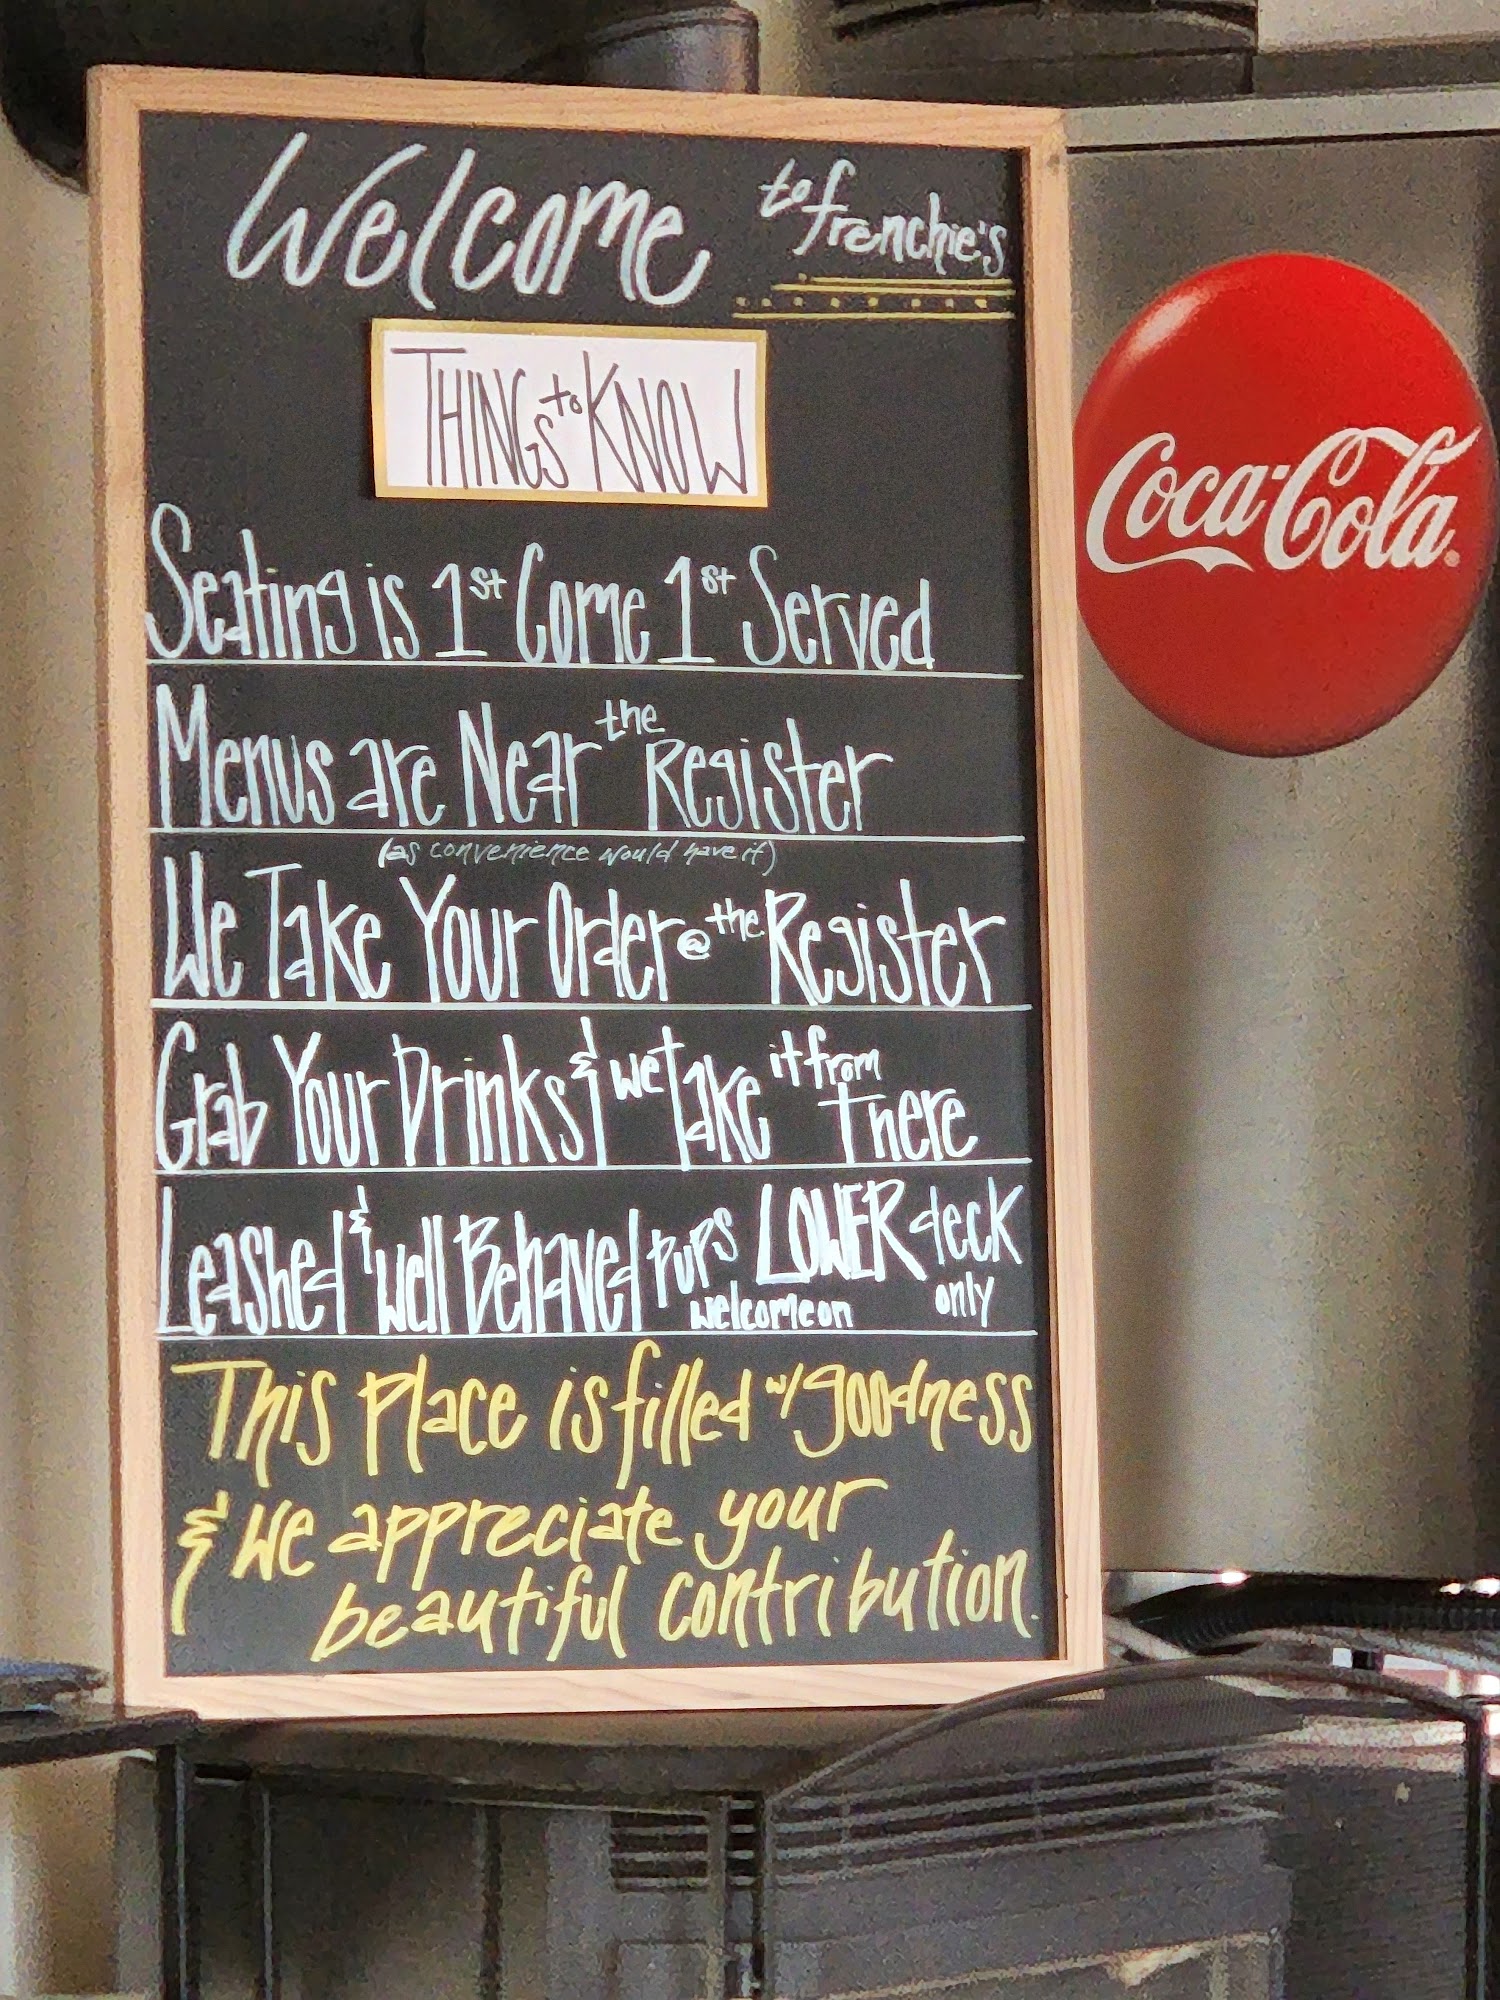 Welcome to frenchie's
THINGS to KNOW
Seating is 1st Come 1st Served
Menus are Near the Register
(as convenience would have it)
We Take Your Order @ the Register
Grab Your Drinks & we Take it from There
Leashed & Well Behaved pups welcome on LOWER deck only
This place is filled w/ goodness
& we appreciate your
beautiful contribution.
Coca-Cola®